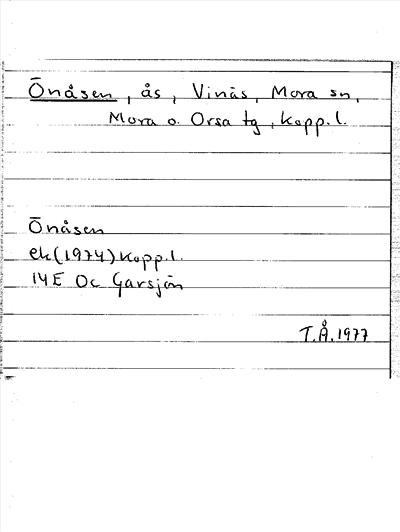 Önåsen, ås, Vinäs, Mora sn,
Mora o. Orsa tg, Kopp.l.
Önåsen
ek(1974) Kopp.l.
14E 0c Garsjön
T.Å.1977